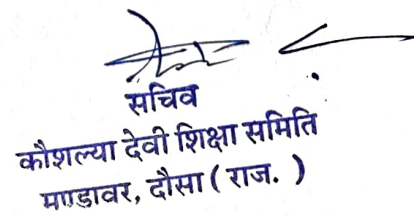 सचिव
कौशल्या देवी शिक्षा समिति
मण्डावर, दौसा ( राज. )